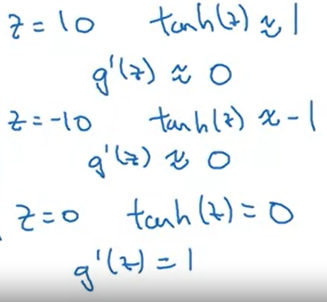 z = 10 tanh(z) ≈ 1
g'(z) ≈ 0
z = -10 tanh(z) ≈ -1
g'(z) ≈ 0
z = 0 tanh(z) = 0
g'(z) = 1